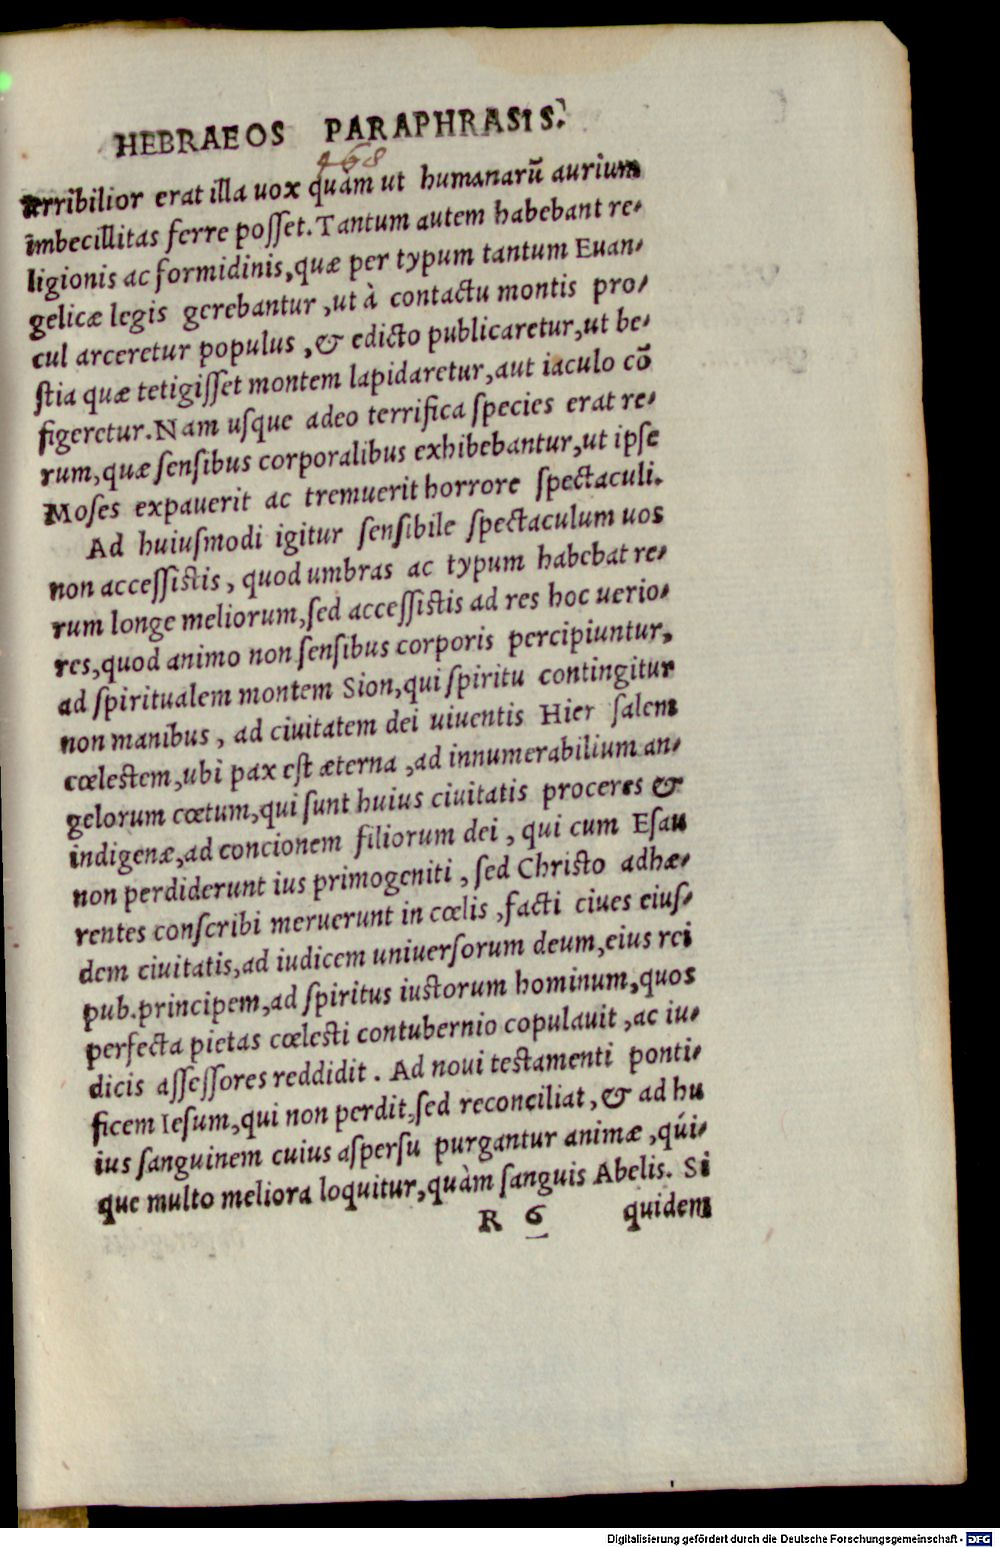 HEBRAEOS PARAPHRASIS.
468
terribilior erat illa uox quàm ut humanarū aurium
imbecillitas ferre poſſet. Tantum autem habebant re-
ligionis ac formidinis, quæ per typum tantum Euan-
gelicæ legis gerebantur, ut à contactu montis pro-
cul arceretur populus, & edicto publicaretur, ut be-
ſtia quæ tetigiſſet montem lapidaretur, aut iaculo cō
figeretur. Nam uſque adeo terrifica ſpecies erat re-
rum, quæ ſenſibus corporalibus exhibebantur, ut ipſe
Moſes expauerit ac tremuerit horrore ſpectaculi.
Ad huiuſmodi igitur ſenſibile ſpectaculum uos
non acceſſiſtis, quod umbras ac typum habebat re-
rum longe meliorum, ſed acceſſiſtis ad res hoc uerio-
res, quod animo non ſenſibus corporis percipiuntur,
ad ſpiritualem montem Sion, qui ſpiritu contingitur
non manibus, ad ciuitatem dei uiuentis Hier ſalem
cœleſtem, ubi pax eſt æterna, ad innumerabilium an-
gelorum cœtum, qui ſunt huius ciuitatis proceres &
indigenæ, ad concionem filiorum dei, qui cum Eſau
non perdiderunt ius primogeniti, ſed Chriſto adhæ-
rentes conſcribi meruerunt in cœlis, facti ciues eiuſ-
dem ciuitatis, ad iudicem uniuerſorum deum, eius rei
pub. principem, ad ſpiritus iuſtorum hominum, quos
perfecta pietas cœleſti contubernio copulauit, ac iu-
dicis aſſeſſores reddidit. Ad noui teſtamenti ponti-
ficem Ieſum, qui non perdit, ſed reconciliat, & ad hu
ius ſanguinem cuius aſperſu purgantur animæ, qúi-
que multo meliora loquitur, quàm ſanguis Abelis. Si
R 6 quidem
Digitalisierung gefördert durch die Deutsche Forschungsgemeinschaft - DFG